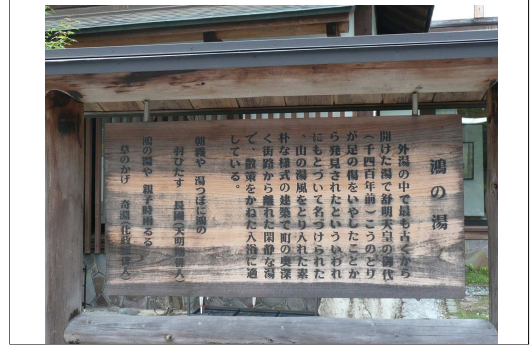 鴻の湯
外湯の中で最も古くから
開けた湯で舒明天皇の御代
(千四百年前)こうのどり
が足の傷をいやしたことか
ら発見されたといういわれ
にもとづいて名づけられた
、山の湯風をとり入れた素
朴な様式の建築で町の奥深
く街路から離れた閑静な湯
で、散策をかねた入浴に適
している。
朝戦や 湯つぼに鴻の
羽ひたす
鴻の湯や 親子時雨るる
草のかげ